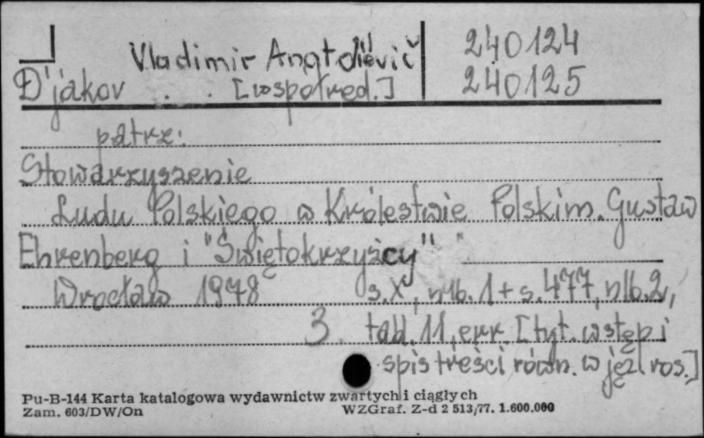 Vladimir Anatolievič 240124
D'jakov [współred.] 240125
patrz:
Stowarzyszenie
Ludu Polskiego w Królestwie Polskim. Gustaw
Ehrenberg i "Świętokrzyżcy"
Wrocław 1978 s. X, nlb. 1 + s. 477, nlb. 2,
3. tabl. 11, err. [tyt. wstęp i
spis treści równ. w jęz. ros.]
Pu-B-144 Karta katalogowa wydawnictw zwartych i ciągłych
Zam. 603/DW/On WZGraf. Z-d 2 513/77. 1.600.000